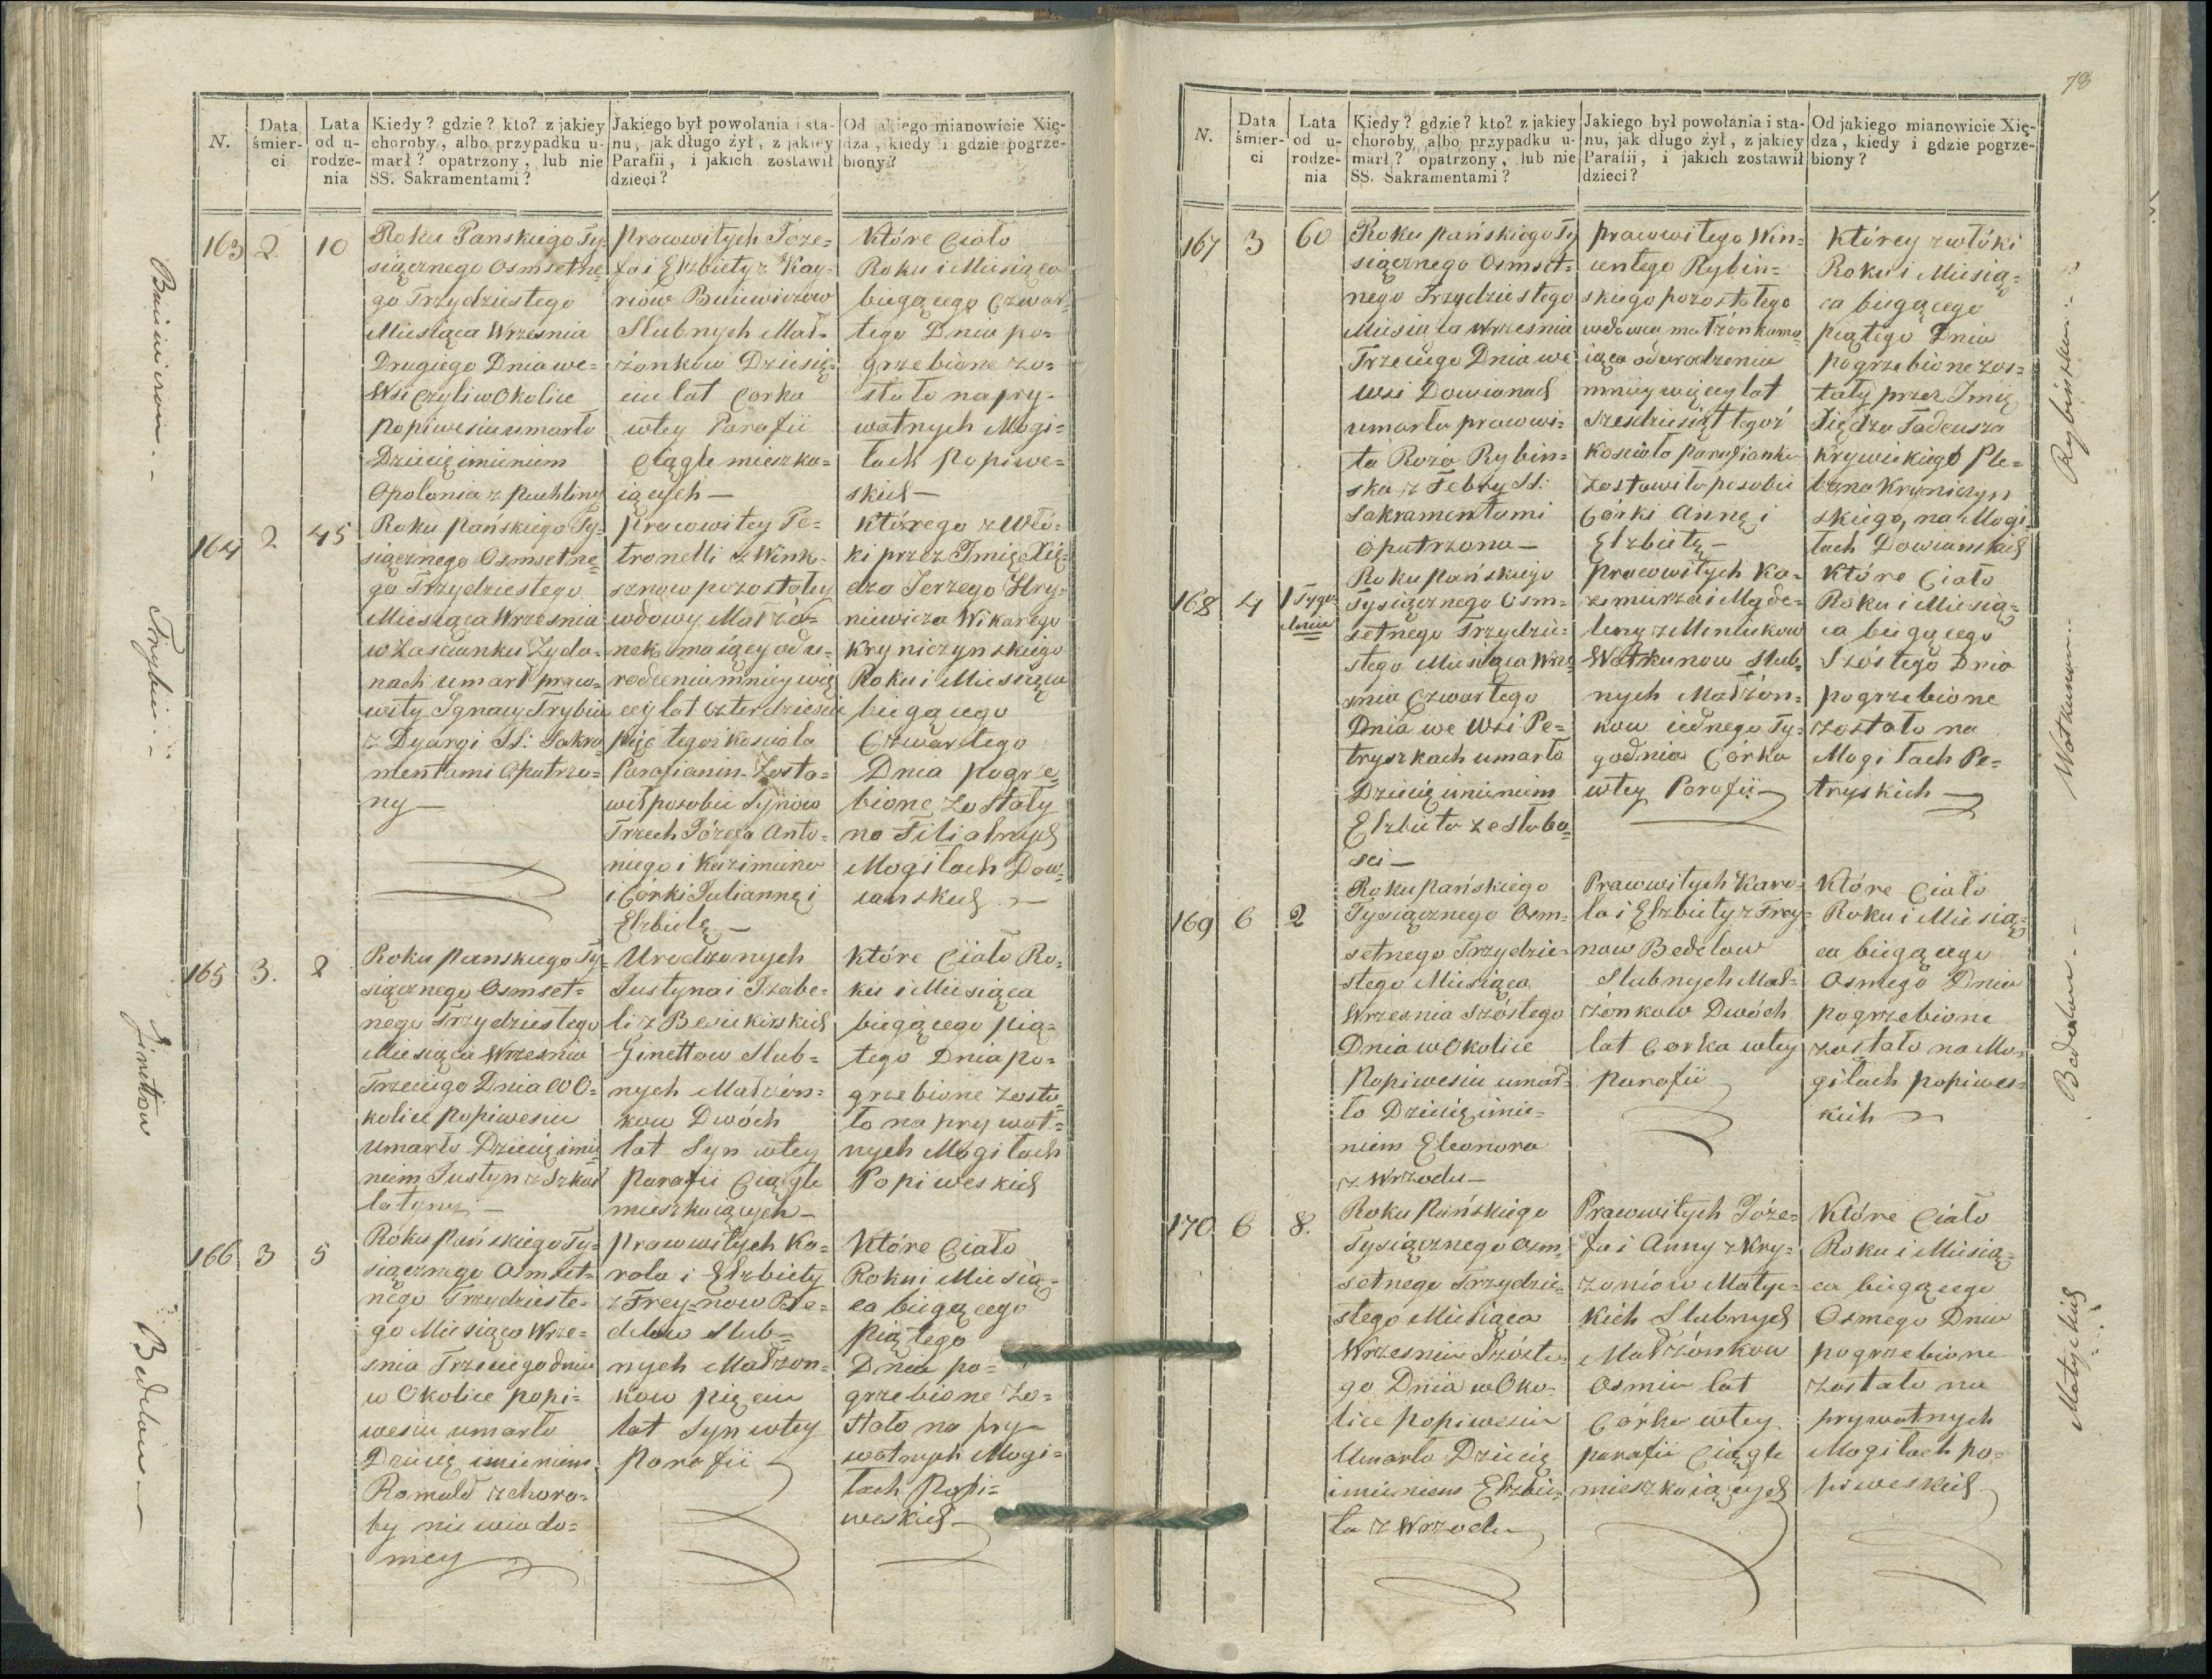 78
N.
Data śmier- ci
Lata od u- rodze- nia
Kiedy? gdzie? kto? z jakiey choroby, albo przypadku u- marł? opatrzony, lub nie SS. Sakramentami?
Jakiego był powołania i sta- nu, jak długo żył, z jakiey Parafii, i jakich zostawił dzieci?
Od jakiego mianowicie Xię- dza, kiedy i gdzie pogrze- biony?
163
2
10
Roku Panskiego Ty-
siącznego Osmsetne-
go Trzydziestego
Miesiąca Wrzesnia
Drugiego Dnia we-
Wsi czyli w Okolice
Popiwesiu umarło
Dziecię imieniem
Opolonia z puchliny
Pracowitych Józe-
fa i Elzbiety z Kay-
riow Buiewiczow
Slubnych Mał-
żonkow Dziesię-
ciu lat Corka
wtey Parafii
Ciągle mieszka-
iących —
Które Ciało
Roku i Miesiąca
biegącego Czwar-
tego Dnia po-
grzebione zo-
stało na pry-
watnych Mogi-
łach Popiwe-
skich —
Buiewiczow. -
164
2
45
Roku Pańskiego Ty-
siącznego Osmsetne-
go Trzydziestego
Miesiąca Wrzesnia
w Zaścianku Zydo-
nach umarł praco-
wity Ignacy Trybiu
z Dyargi SS: Sakra
mentami Opatrzo-
ny —
Pracowitey Pe-
tronelli z Wink-
sznow pozostałey
wdowy Małżo-
nek maiący od u-
rodzenia mniey wię
cey lat czterdziescie
pięć tegoż kosciola
Parafianin. Zosta-
wił posobie Synow
Trzech Józefa Anto-
niego i Kazimierza
i Corki Juliannę i
Elzbietę —
Którego zwło-
ki przez Jmię Xię-
dza Jerzego Hry-
niewicza Wikarego
Kryniczynskiego
Roku i Miesiąca
biegącego
Czwartego
Dnia pogrze-
bione zostały
na Filialnych
Mogiłach Dow-
ianskich. —
Trybiu. -
165
3.
2
Roku Panskiego Ty-
siącznego Osmset-
nego Trzydziestego
Miesiąca Wrzesnia
Trzeciego Dnia w O-
kolice Popiwesiu
umarło Dziecię imie
niem Justyn z Szkar
latyny —
Urodzonych
Justyna i Izabe-
li z Bewikirskich
Ginettow Slub-
nych Małżon-
kow Dwóch
lat Syn wtey
Parafii Ciągle
mieszkaiących —
Które Ciało Ro-
ku i Miesiąca
biegącego pią-
tego Dnia po-
grzebione zosta-
ło na prywat-
nych Mogiłach
Popiweskich
Ginetow
166
3
5
Roku Pańskiego Ty-
siącznego Osmset-
nego Trzydzieste-
go Miesiąca Wrze-
snia Trzeciego dnia
w Okolice popi-
wesiu umarło
Dziecię imieniem
Romuald z choro-
by nie wiado-
mey
Pracowitych Ka-
rola i Elzbiety
z Frey-now Be-
delow Slub-
nych Małzon-
kow pięciu
lat Syn wtey
Parafii
Które Ciało
Roku i Miesią-
ca biegącego
piątego
Dnia po-
grzebione zo-
stało na pry-
watnych Mogi-
łach Popi-
weskich —
Bedelow. —
N.
Data śmier- ci
Lata od u- rodze- nia
Kiedy? gdzie? kto? z jakiey choroby, albo przypadku u- marł? opatrzony, lub nie SS. Sakramentami?
Jakiego był powołania i sta- nu, jak długo żył, z jakiey Parafii, i jakich zostawił dzieci?
Od jakiego mianowicie Xię- dza, kiedy i gdzie pogrze- biony?
167
3
60
Roku pańskiego Ty
siącznego Osmset-
nego Trzydziestego
Miesiąca Wrzesnia
Trzeciego Dnia we
wsi Dowianach
umarła pracowi-
ta Roża Rybin-
ska z Febry SS:
Sakramentami
Opatrzona —
pracowitego Win-
centego Rybin-
skiego pozostałego
wdowca małżonka ma
iąca od urodzenia
mniey więcey lat
Szesdziesiąt tegoż
Kosciola parafianka
Zostawiła posobie
Corki Annę i
Elzbietę —
Którey zwłóki
Roku i Miesią-
ca biegącego
piątego Dnia
pogrzebione zos-
tały przez Jmię
Xiędza Tadeusza
Krywickiego Ple-
bana Kryniczyn
skiego, na Mogi-
łach Dowianskich
Rybinskiew
168
4
1 Tygo dnia
Roku Pańskiego
Tysiącznego Osm-
setnego Trzydzie-
stego Miesiąca Wrze-
snia Czwartego
Dnia we Wsi Pe-
tryszkach umarło
Dziecię imieniem
Elzbieta ze słabo-
sci —
Pracowitych Ka-
zimierza i Magde-
leny z Minlukow
Watkunow Slub-
nych Małżon-
kow iednego Ty-
godnia Córka
wtey Parafii —
Które Ciało
Roku i Miesią-
ca biegącego
Szóstego Dnia
pogrzebione
zostało na
Mogiłach Pe-
tryskich —
Watkunow
169
6
2
Roku Pańskiego
Tysiącznego Osm-
setnego Trzydzie-
stego Miesiąca
Wrzesnia Szóstego
Dnia w Okolice
Popiwesiu umar-
ło Dziecię imie-
niem Eleonora
z Wrzodu —
Pracowitych Karo-
la i Elzbiety z Frey-
now Bedelow
Slubnych Mał-
żonkow Dwóch
lat Corka wtey
parafii
Które Ciało
Roku i Miesią-
ca biegącego
Osmego Dnia
pogrzebione
zostało na Mo-
giłach popiwes-
kich
Bedelow. -
170
6
8.
Roku Pańskiego
Tysiącznego Osm-
setnego Trzydzie-
stego Miesiąca
Wrzesnia Szóste-
go Dnia w Oko-
lice Popiwesiu
Umarło Dziecię
imieniem Elzbie-
ta z Wrzodu
Pracowitych Józe-
fa i Anny z Kry-
zoniow Matyc-
kich Slubnych
Małżonkow
Osmiu lat
Córka wtey
parafii Ciągle
mieszkaiących
Które Ciało
Roku i Miesią-
ca biegącego
Osmego Dnia
pogrzebione
zostało na
prywatnych
Mogiłach po-
piweskich
Matyckich